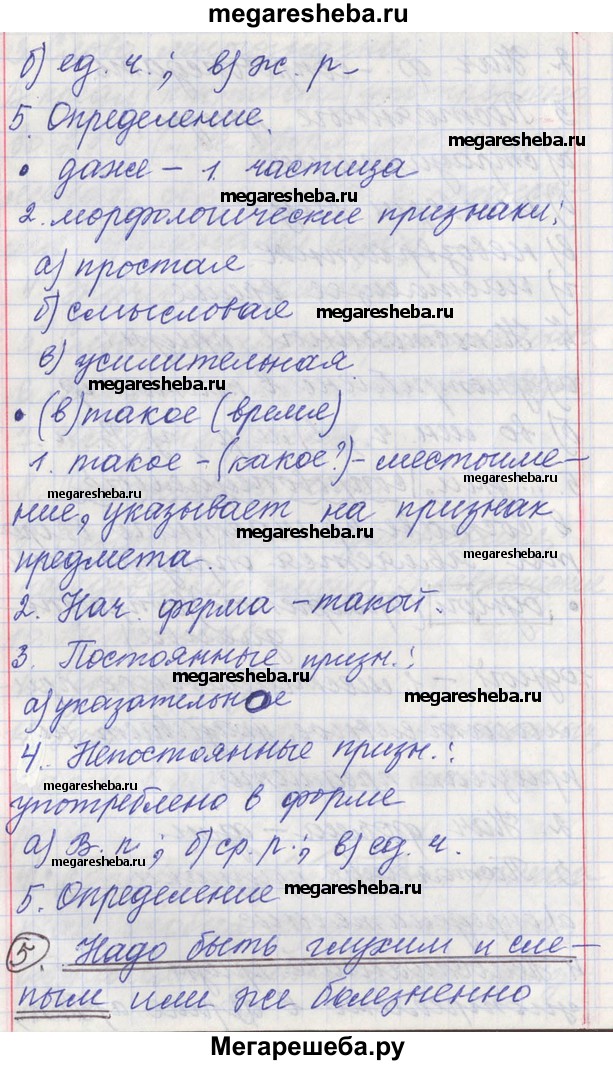 megaresheba.ru
б) ед. ч.; в) ж. р.
5. Определение.
• даже – 1. частица
megaresheba.ru
2. морфологические признаки:
а) простая
б) смысловая
megaresheba.ru
в) усилительная
megaresheba.ru
• (в) такое (время)
1. такое – (какое?) – местоиме-
megaresheba.ru
megaresheba.ru
ние, указывает на признак
megaresheba.ru
предмета.
megaresheba.ru
2. Нач. форма – такой.
3. Постоянные призн.:
megaresheba.ru
а) указательное
megaresheba.ru
4. Непостоянные призн.:
megaresheba.ru
употреблено в форме
megaresheba.ru
а) В. п.; б) ср. р.; в) ед. ч.
megaresheba.ru
5. Определение
megaresheba.ru
5. Надо быть глухим и сле-
пым или же болезненно
Мегарешеба.ру